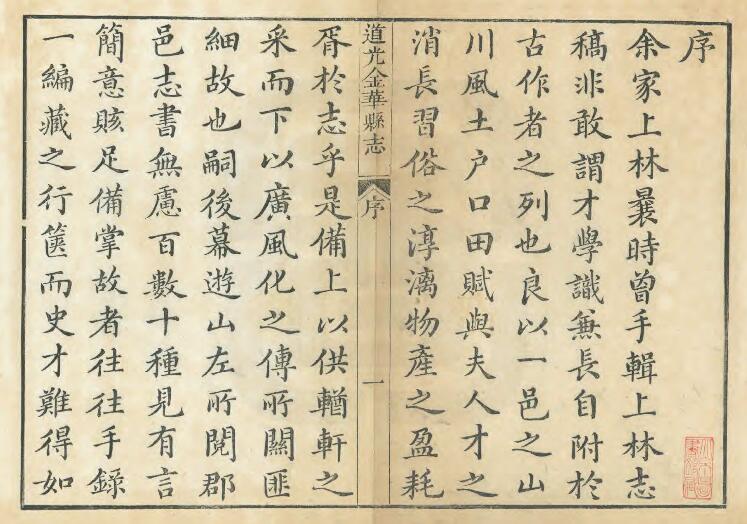 序
余家上林曩時曾手輯上林志
稿非敢謂才學識兼長自附於
古作者之列也良以一邑之山
川風土户口田賦與夫人才之
消長習俗之淳漓物產之盈耗
道光金華縣志
序
一
胥於志乎是備上以供輶軒之
采而下以廣風化之傳所關匪
細故也嗣後幕遊山左所閱郡
邑志書無慮百數十種見有言
簡意賅足備掌故者往往手錄
一編藏之行篋而史才難得如